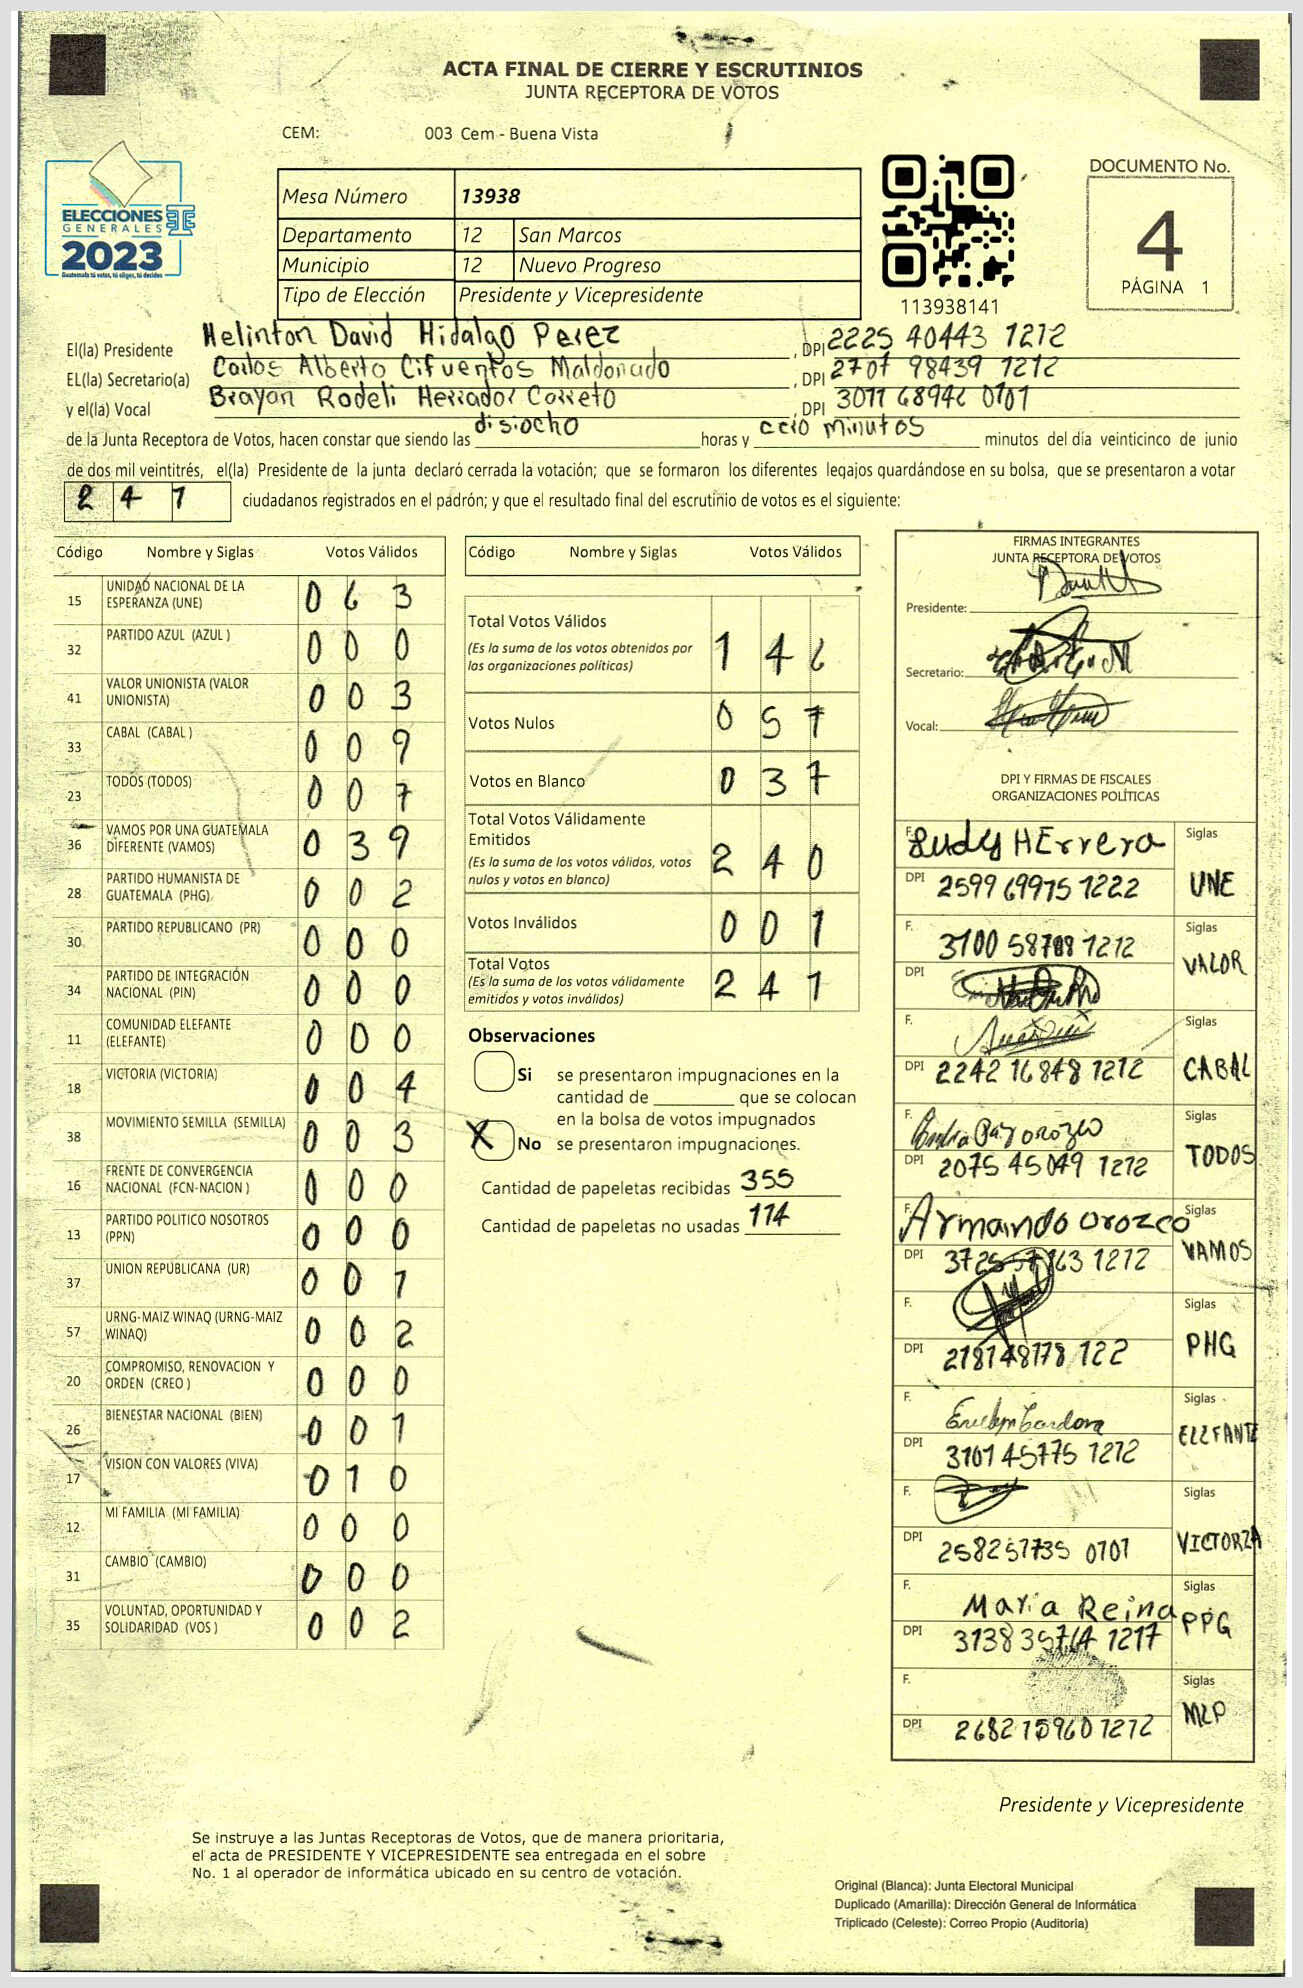 ACTA FINAL DE CIERRE Y ESCRUTINIOS
JUNTA RECEPTORA DE VOTOS
CEM: 003 Cem - Buena Vista
ELECCIONES
GENERALES
2023
Guatemala tú votas, tú eliges, tú decides
Mesa Número 13938
Departamento 12 San Marcos
Municipio 12 Nuevo Progreso
Tipo de Elección Presidente y Vicepresidente
113938141
DOCUMENTO No.
4
PÁGINA 1
El(la) Presidente Helinton David Hidalgo Perez , DPI 2225 40443 1212
EL(la) Secretario(a) Carlos Alberto Cifuentos Maldonado , DPI 2707 98439 1212
y el(la) Vocal Brayan Rodeli Herrador Correto , DPI 3011 68946 0101
de la Junta Receptora de Votos, hacen constar que siendo las disiocho horas y cero minutos minutos del día veinticinco de junio
de dos mil veintitrés, el(la) Presidente de la junta declaró cerrada la votación; que se formaron los diferentes legajos quardándose en su bolsa, que se presentaron a votar
2 4 1 ciudadanos registrados en el padrón; y que el resultado final del escrutinio de votos es el siguiente:
Código Nombre y Siglas Votos Válidos
15 UNIDAD NACIONAL DE LA ESPERANZA (UNE) 0 6 3
32 PARTIDO AZUL (AZUL ) 0 0 0
41 VALOR UNIONISTA (VALOR UNIONISTA) 0 0 3
33 CABAL (CABAL ) 0 0 9
23 TODOS (TODOS) 0 0 7
36 VAMOS POR UNA GUATEMALA DIFERENTE (VAMOS) 0 3 9
28 PARTIDO HUMANISTA DE GUATEMALA (PHG) 0 0 2
30 PARTIDO REPUBLICANO (PR) 0 0 0
34 PARTIDO DE INTEGRACIÓN NACIONAL (PIN) 0 0 0
11 COMUNIDAD ELEFANTE (ELEFANTE) 0 0 0
18 VICTORIA (VICTORIA) 0 0 4
38 MOVIMIENTO SEMILLA (SEMILLA) 0 0 3
16 FRENTE DE CONVERGENCIA NACIONAL (FCN-NACION ) 0 0 0
13 PARTIDO POLITICO NOSOTROS (PPN) 0 0 0
37 UNION REPUBLICANA (UR) 0 0 1
57 URNG-MAIZ WINAQ (URNG-MAIZ WINAQ) 0 0 2
20 COMPROMISO, RENOVACION Y ORDEN (CREO ) 0 0 0
26 BIENESTAR NACIONAL (BIEN) 0 0 1
17 VISION CON VALORES (VIVA) 0 1 0
12 MI FAMILIA (MI FAMILIA) 0 0 0
31 CAMBIO (CAMBIO) 0 0 0
35 VOLUNTAD, OPORTUNIDAD Y SOLIDARIDAD (VOS ) 0 0 2
Código Nombre y Siglas Votos Válidos
Total Votos Válidos 1 4 6
(Es la suma de los votos obtenidos por
las organizaciones políticas)
Votos Nulos 0 5 7
Votos en Blanco 0 3 7
Total Votos Válidamente
Emitidos 2 4 0
(Es la suma de los votos válidos, votos
nulos y votos en blanco)
Votos Inválidos 0 0 1
Total Votos 2 4 1
(Es la suma de los votos válidamente
emitidos y votos inválidos)
Observaciones
Si se presentaron impugnaciones en la
cantidad de ________ que se colocan
en la bolsa de votos impugnados
X No se presentaron impugnaciones.
Cantidad de papeletas recibidas 355
Cantidad de papeletas no usadas 114
FIRMAS INTEGRANTES
JUNTA RECEPTORA DE VOTOS
Presidente:
Secretario:
Vocal:
DPI Y FIRMAS DE FISCALES
ORGANIZACIONES POLÍTICAS
F. Ludy HErrera Siglas
DPI 2599 69975 1222 UNE
F. 3100 1212 Siglas
DPI VALOR
F. Siglas
DPI 2242 16848 1212 CABAL
F. Orozco Siglas
DPI 2075 45049 1212 TODOS
F. Armando Orozco Siglas
DPI 1212 VAMOS
F. Siglas
DPI 122 PHG
F. Siglas
DPI 3101 45775 1212 ELEFANTE
F. Siglas
DPI 258257735 0101 VICTORIA
F. Maria Reina Siglas
DPI 3138 1217 PPG
F. Siglas
DPI 2682 15960 1212 MLP
Presidente y Vicepresidente
Se instruye a las Juntas Receptoras de Votos, que de manera prioritaria,
el acta de PRESIDENTE Y VICEPRESIDENTE sea entregada en el sobre
No. 1 al operador de informática ubicado en su centro de votación.
Original (Blanca): Junta Electoral Municipal
Duplicado (Amarilla): Dirección General de Informática
Triplicado (Celeste): Correo Propio (Auditoría)